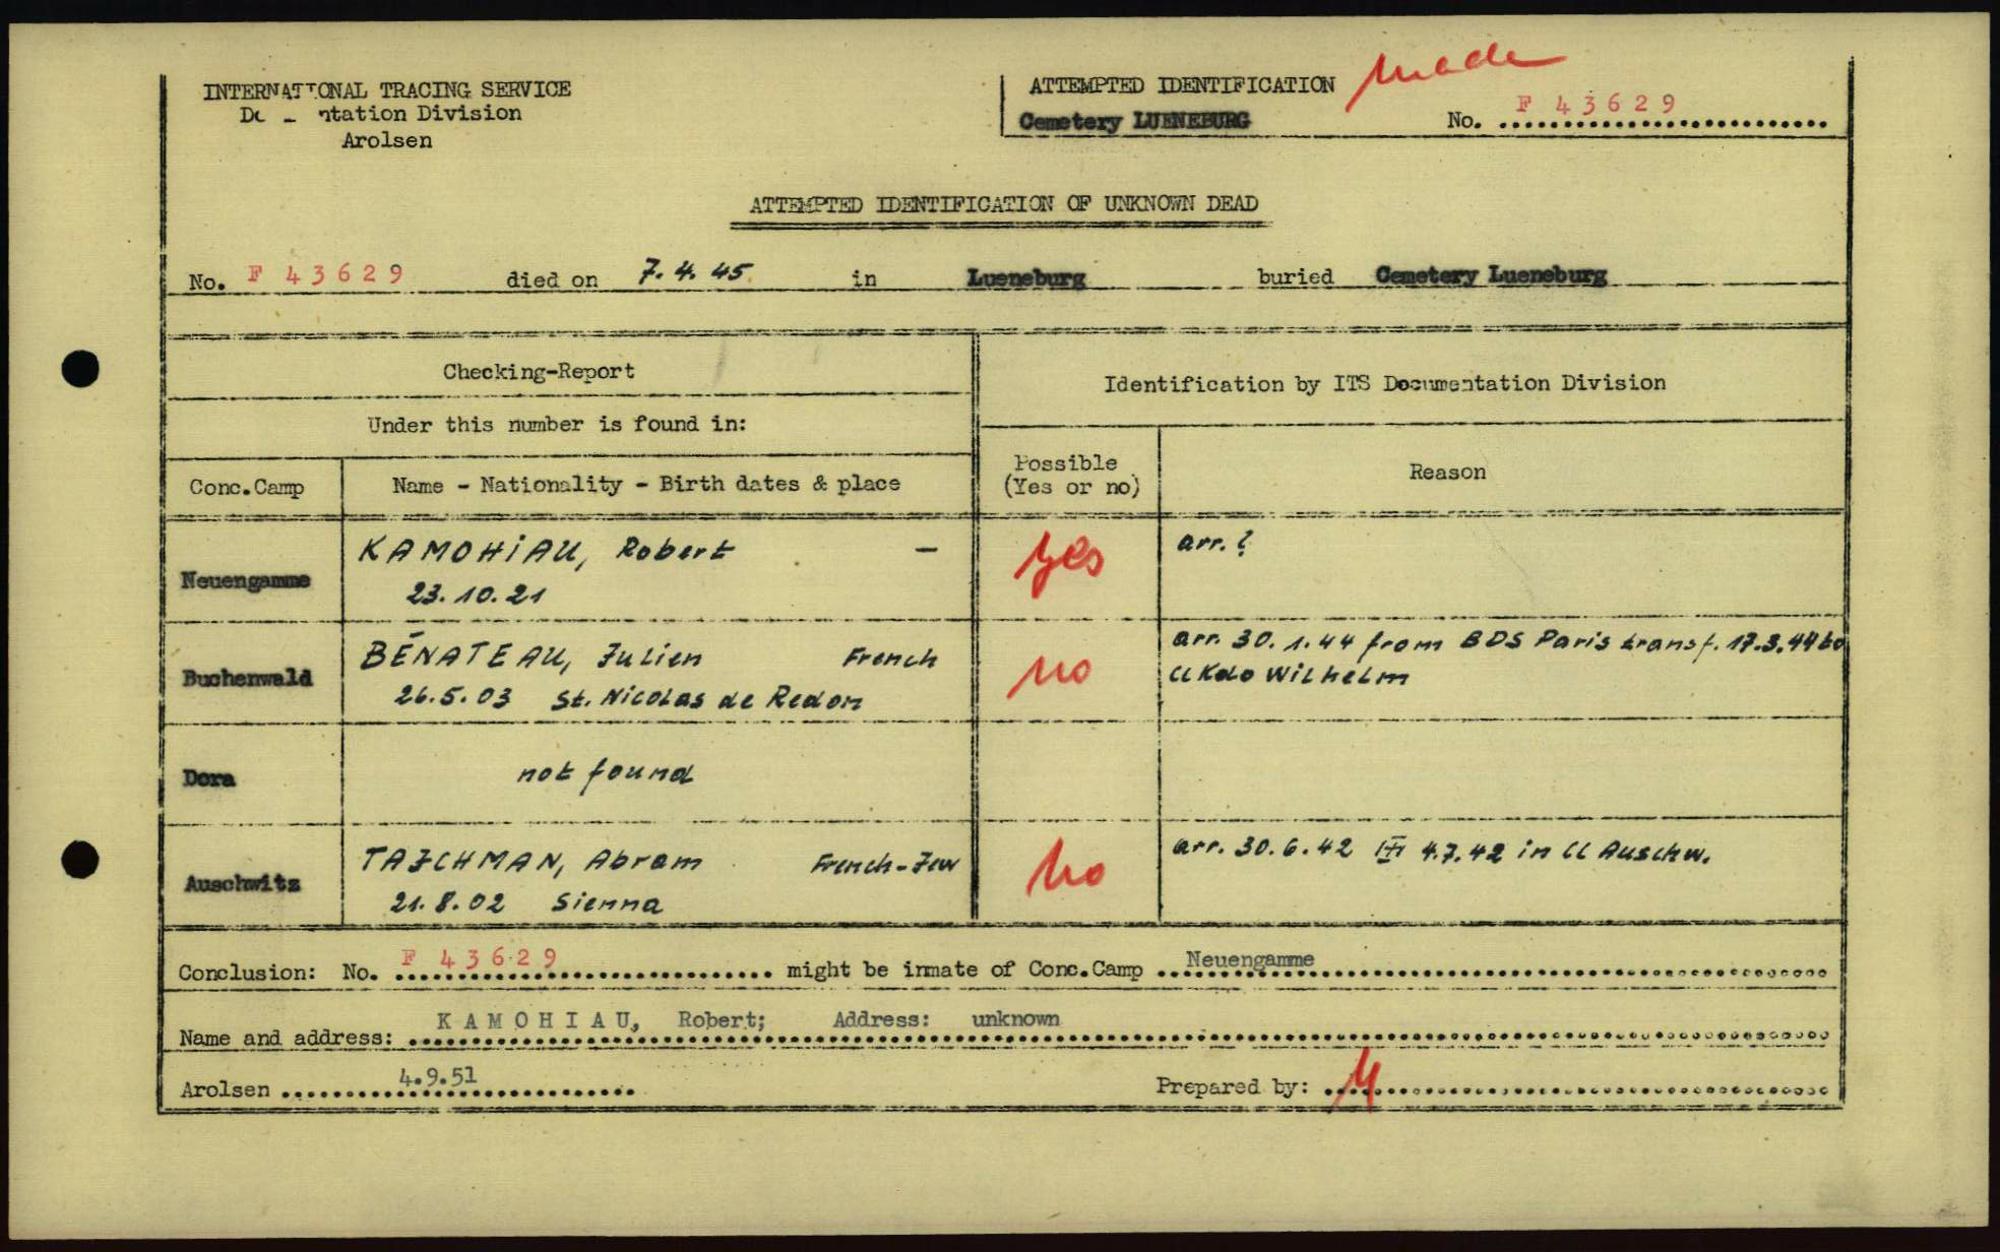 INTERNATIONAL TRACING SERVICE
ntation Division
Arolsen
ATTEMPTED IDENTIFICATION
made
Cemetery LUENEBURG
No. F 43629
ATTEMPTED IDENTIFICATION OF UNKNOWN DEAD
No. F 43629 died on 7.4.45 in Lueneburg buried Cemetery Lueneburg
Checking-Report
Identification by ITS Documentation Division
Under this number is found in:
Conc.Camp
Name - Nationality - Birth dates & place
Possible
(Yes or no)
Reason
Neuengamme
KAMOHIAU, Robert -
23.10.21
yes
arr. ?
Buchenwald
BÉNATEAU, Julien French
26.5.03 St. Nicolas de Redon
no
arr. 30.1.44 from BDS Paris transf. 17.3.44 to
CC Kdo Wilhelm
Dora
not found
Auschwitz
TAJCHMAN, Abram French-Jew
21.8.02 Sienna
No
arr. 30.6.42 4.7.42 in CC Auschw.
Conclusion: No. F 43629 might be inmate of Conc.Camp Neuengamme
Name and address: KAMOHIAU, Robert; Address: unknown
Arolsen 4.9.51
Prepared by: